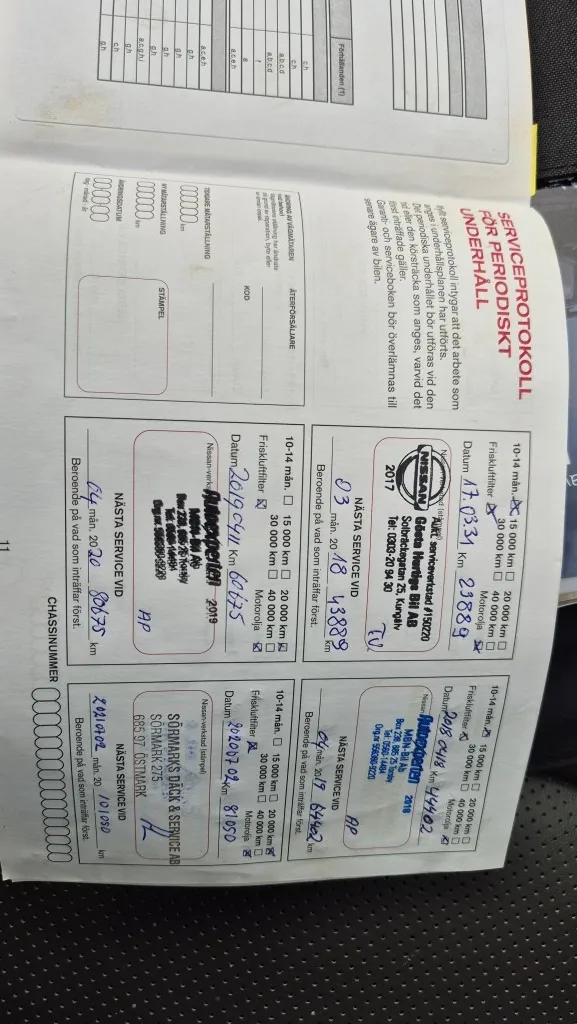 Förhållanden (1)
c.h
c.h
a.b.c.d
a.b.c.d
f
a
a.c.e.h
a.c.e.h
g.h
g.h
g.h
g.h
a.c.g.h.i
c.h
g.h
SERVICEPROTOKOLL
FÖR PERIODISKT
UNDERHÅLL
ifyllt serviceprotokoll intygar att det arbete som
anges i underhållsplanen har utförts.
Det periodiska underhållet bör utföras vid den
tid eller den körsträcka som anges, varvid det
först inträffade gäller.
Garanti- och serviceboken bör överlämnas till
senare ägare av bilen.
ÄNDRING AV VÄGMÄTAREN
ÅTERFÖRSÄLJARE
KOD
TIDIGARE MÄTARSTÄLLNING
km
NY MÄTARSTÄLLNING
km
ÄNDRINGSDATUM
dag - månad - år
STÄMPEL
10-14 mån. 15 000 km 20 000 km
Friskluftfilter 30 000 km 40 000 km
Motorolja
Datum 17.03.31 Km 23889
Nissan-verkstad (stämpel)
NISSAN
2017
Aukt serviceverkstad #150220
Gösta Hertige Bil AB
Solbräckegatan 25, Kungälv
Tel: 0303-20 94 30
NÄSTA SERVICE VID
03 mån. 2018 43889 km
Beroende på vad som inträffar först.
10-14 mån. 15 000 km 20 000 km
Friskluftfilter 30 000 km 40 000 km
Motorolja
Datum 2018 04 18 Km 44402
Nissan-
Autoexperten
2018
MBN-Bil Ab
Box 238, 685 25 Torsby
Tel. 0560-144 84
AP
NÄSTA SERVICE VID
04 mån. 2019 64402 km
Beroende på vad som inträffar först.
10-14 mån. 15 000 km 20 000 km
Friskluftfilter 30 000 km 40 000 km
Motorolja
Datum 2019 04 11 Km 60675
Nissan-verkstad
Autoexperten
2019
MBN-Bil Ab
Box 238, 685 25 Torsby
Tel. 0560-144 84
AP
NÄSTA SERVICE VID
04 mån. 2020 80675 km
Beroende på vad som inträffar först.
10-14 mån. 15 000 km 20 000 km
Friskluftfilter 30 000 km 40 000 km
Motorolja
Datum 20200702 Km 81050
Nissan-verkstad (stämpel)
SÖRMARKS DÄCK & SERVICE AB
SÖRMARK 275
685 97 ÖSTMARK
NÄSTA SERVICE VID
20210702 mån. 20 101050 km
Beroende på vad som inträffar först.
CHASSINUMMER
11